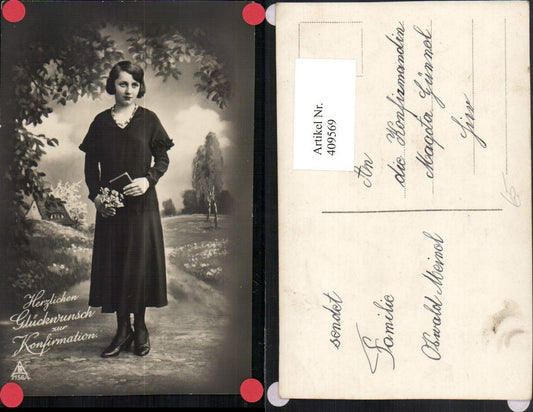 Herzlichen
Glückwunsch
zur
Konfirmation.
1156/4
Artikel Nr.
409569
An
die Konfirmandin
Magda Günnel
hier
sendet
Familie
Oswald Meinel